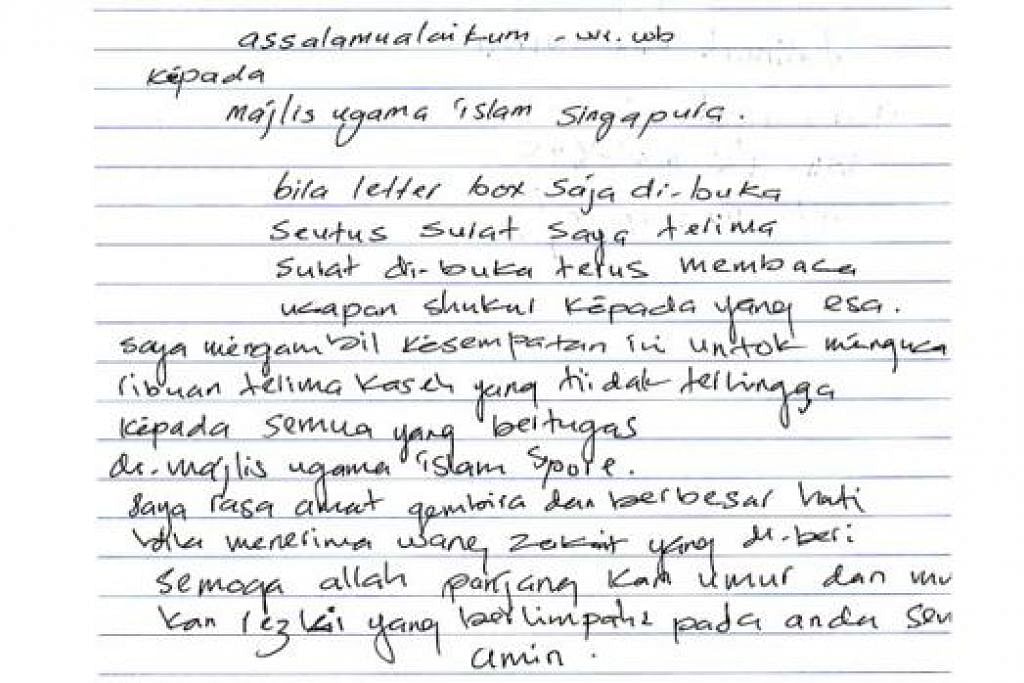 assalamualaikum - wr. wb
Kepada
Majlis ugama islam Singapura.
bila letter box saja di-buka
seutus surat saya terima
surat di-buka terus membaca
ucapan shukur kepada yang esa.
saya mengambil kesempatan ini untok menguca
ribuan terima kaseh yang tiidak terhingga
kepada semua yang bertugas
di-majlis ugama islam Spore.
saya rasa amat gembira dan berbesar hati
bila menerima wang zakat yang di-beri
semoga allah panjang kan umur dan mu
kan rezkii yang berlimpah2 pada anda sem
amin.